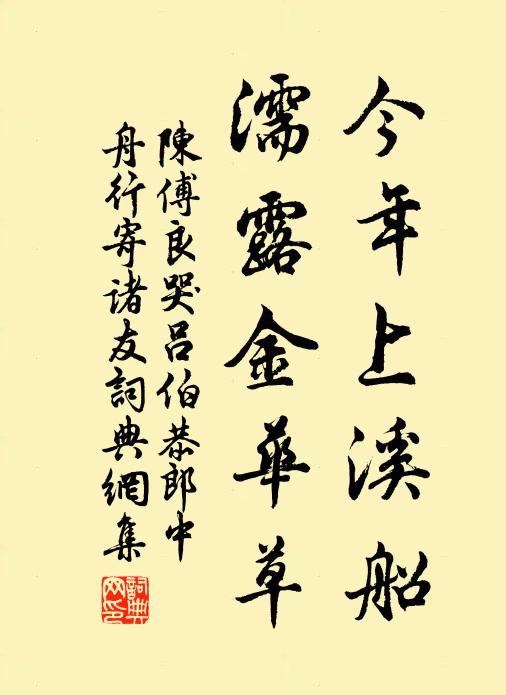 今年上溪船
濡露金華草
陳傅良哭吕伯恭郎中
舟行寄诸友詞典網集
詞典網印